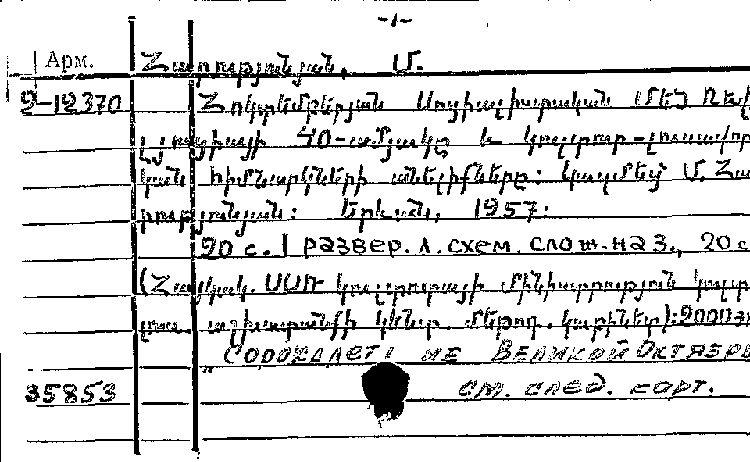 -1-
Арм. Հարությունյան, Մ.
2-12370 Հոկտեմբերյան Սոցիալիստական մեծ ռևոլ
յուցիայի 40-ամյակը և կուլտուր-լուսավոր
կան հիմնարկների անելիքները: Կազմեց՝ Մ. Հա
րությունյան: Երևան, 1957:
20 с. 1 развер. л. схем. слож. на 3., 20 с
(Հայկակ. ՍՍՌ կուլտուրայի մինիստրություն կուլտ
լուս. աշխատանքի կենտր. մեթոդ. կաբինետ): 2000
Великой Октябр
35853 см. след.